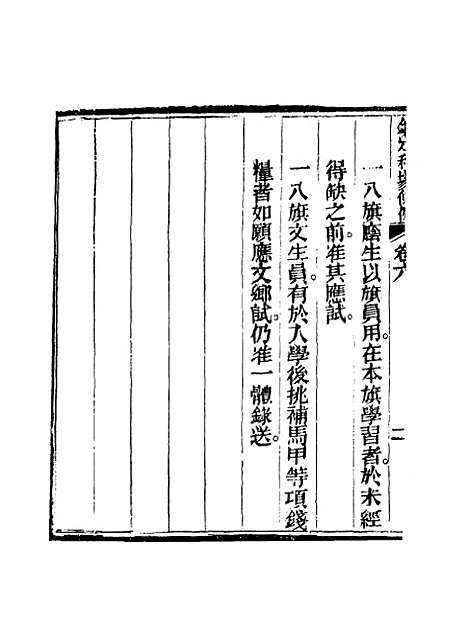 欽定科場條例 卷六 二
一八旗蔭生以旗員用在本旗學習者於未經
得缺之前准其應試
一八旗文生員有於入學後挑補馬甲等項錢
糧者如願應文鄉試仍准一體錄送